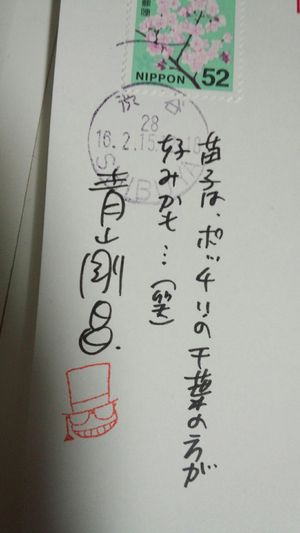 NIPPON 52
渋谷
28
16.2.15
SHIBUYA
苗子は、ポッチリの千葉の方が
好みかも…(笑)
青山剛昌.